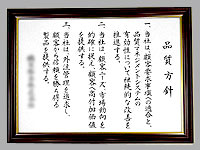 品質方針
一、当社は、顧客要求事項への適合と
品質マネジメントシステムの
有効性について継続的な改善を
推進する。
二、当社は、顧客ニーズ、市場動向を
的確に捉え、顧客へ高付加価値
を提供する。
三、当社は、外注管理を追求し、
顧客から信頼を勝ち得る
製品を提供する。